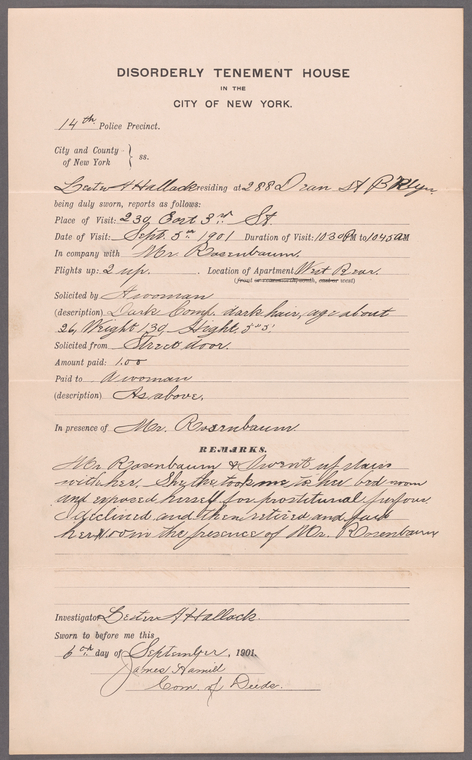 DISORDERLY TENEMENT HOUSE
IN THE
CITY OF NEW YORK.
14th Police Precinct.
City and County
of New York } ss.
Lester A Hallock residing at 288 Dean St B'klyn
being duly sworn, reports as follows:
Place of Visit: 239 East 3rd St.
Date of Visit: Sept. 5th 1901 Duration of Visit: 10 30 PM to 10 45
In company with Mr. Rosenbaum.
Flights up: 2 up. Location of Apartment West Rear.
Solicited by A woman
(description) Dark Comp. dark hair, age about
26, Weight 139 Hight, 5"5'
Solicited from Street door.
Amount paid: 1.00
Paid to A woman
(description) As above.
In presence of Mr. Rosenbaum.
REMARKS.
Mr Rosenbaum & I went up stairs
with her. She took me to her bed room
and exposed herself for prostitutional purpose
I declined and then retired and paid
her 1.00 in the presence of Mr. Rosenbaum
Investigator Lester A Hallock.
Sworn to before me this
6th day of September, 1901.
James Hamill
Com. of Deeds.